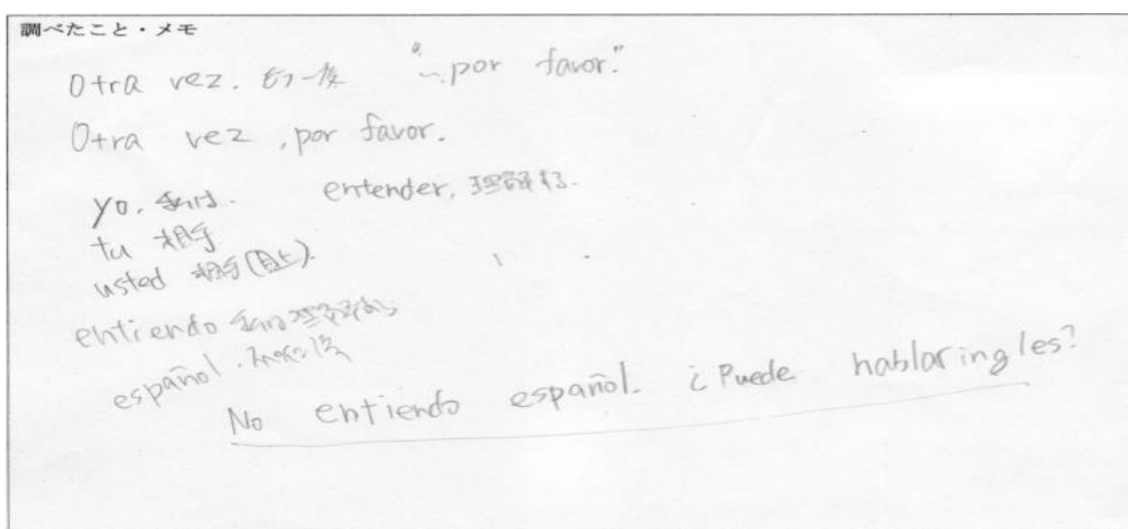 調べたこと・メモ
Otra vez. もう一度 "~, por favor."
Otra vez , por favor.
yo. 私は. entender, 理解する.
tu 相手
usted 相手(目上).
entiendo 私は理解する
español. スペイン語
No entiendo español. ¿Puede hablar ingles?